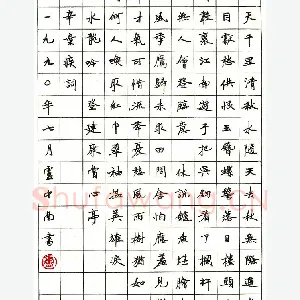 天千里清秋水隨天去秋無際遥
目獻愁供恨玉簪螺髻落日樓頭
聲裏江南遊子把吳鉤看了
無人會登臨意休說鱸魚堪膾
風季鷹歸未求田問舍怕應羞見
才氣可惜流年憂愁風雨樹猶如
何人喚取紅巾翠袖揾英雄淚
水龍吟 登建康賞心亭
辛棄疾詞
一九九〇年七月雲中南書
Shufawang.CN